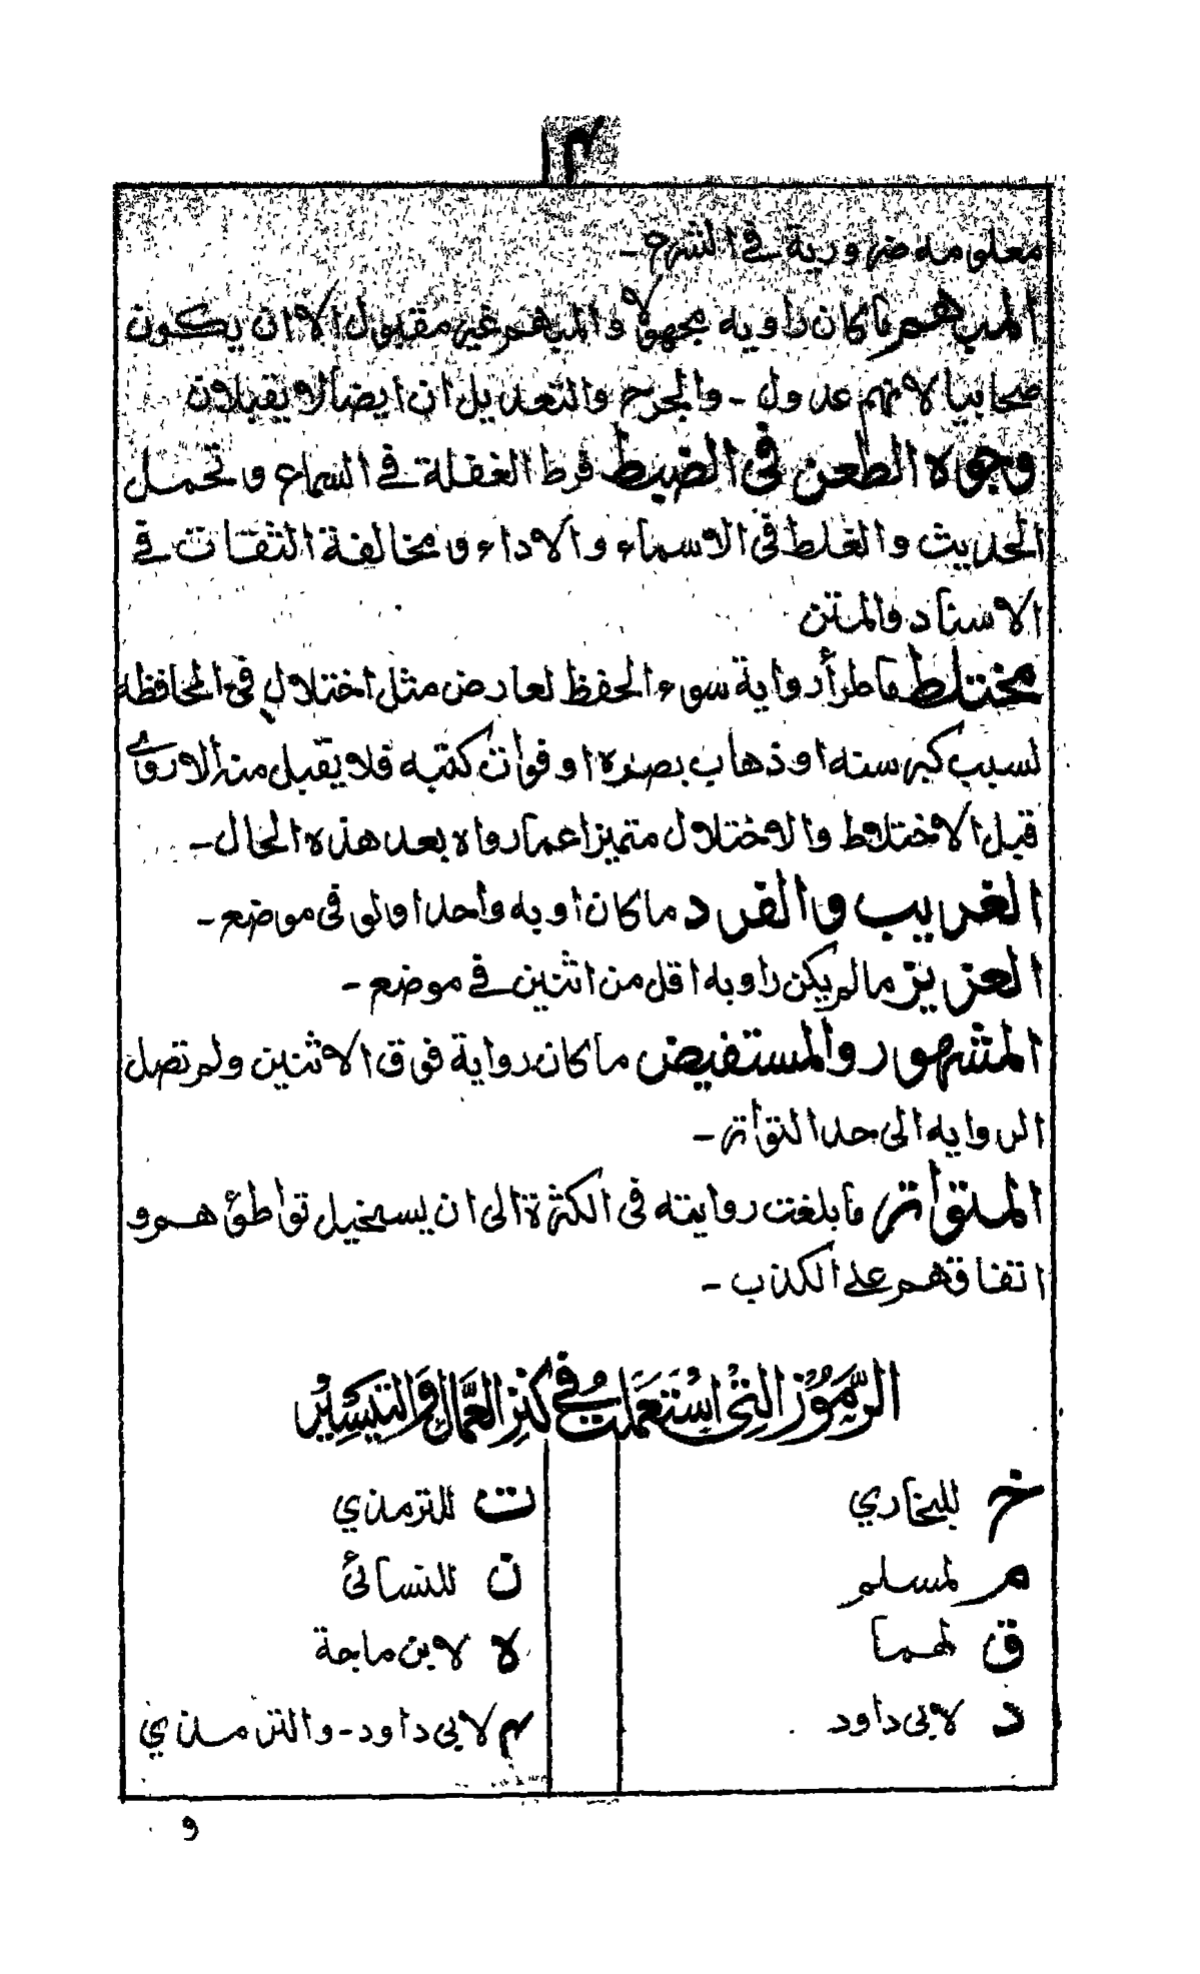 ١٢
معلومه ضرورية في الشرح ـ
المبهم ما كان راويه مجهولا والمبهم غير مقبول الا ان يكون
صحابيا لانهم عدول ـ والجرح والتعديل ان ايضا لا يقبلان
وجوه الطعن في الضبط فرط الغفلة في السماع و تحمل
الحديث والغلط في الاسماء والاداء و مخالفة الثقات في
الاسناد والمتن
مختلط ما طرأ رواية سوء الحفظ لعارض مثل اختلال في المحافظة
لسبب كبر سنه او ذهاب بصره او فوات كتبه فلا يقبل منه الا روى
قبل الاختلاط والاختلال متميزا عما رواه بعد هذه الحال ـ
الغريب والفرد ما كان اويه واحدا ولو في موضع ـ
العزيز ما لم يكن راويه اقل من اثنين في موضع ـ
المشهور والمستفيض ما كان رواية فوق الاثنين ولم تصل
الروايه الى حد التواتر ـ
المتواتر ما بلغت روايته في الكثرة الى ان يستحيل تواطؤ هم و
اتفاقهم على الكذب ـ
الرموز التي استعملت في كنز العمال والتيسير
خ للبخاري
م لمسلم
ق لهما
د لابى داود
ت للترمذي
ن للنسائى
ه لابن ماجة
لابى داود ـ والترمذي
و